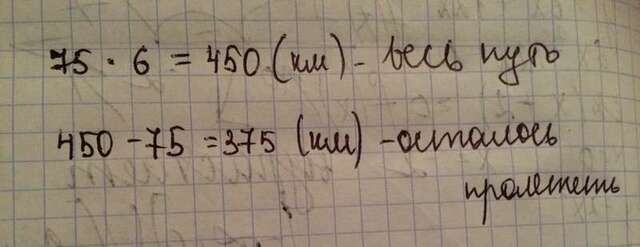 75 · 6 = 450 (км) - весь путь
450 - 75 = 375 (км) - осталось
пролететь